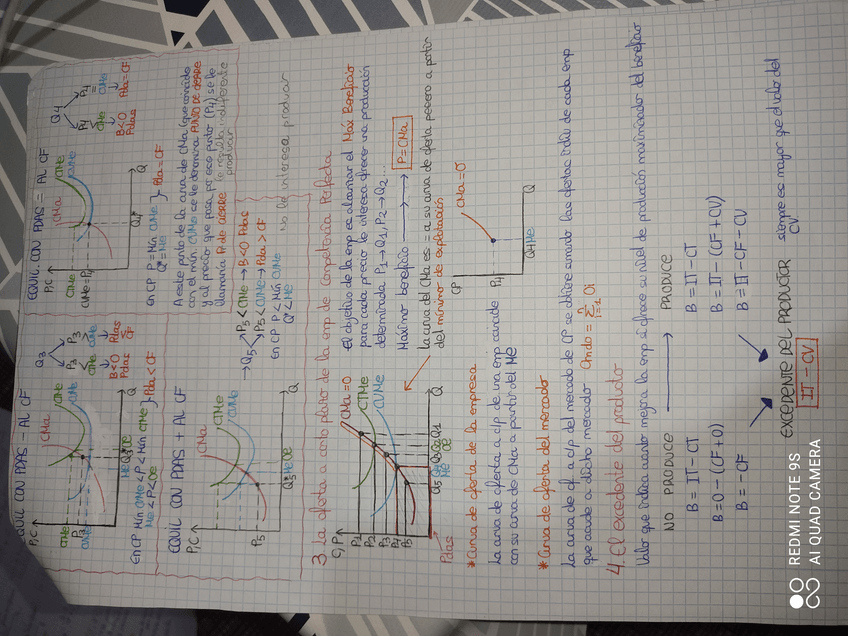 EQUIL CON PDAS - AL CF
P,C
CMa
CTMe
CVMe
CTMe
P3
CVMe
Q3
ME
OE
Q
Q3
P3 < CTMe
P3 > CVMe
B<0
Pdas
Pdas < CF
En CP Mín CVMe < P < Mín CTMe } Pdas < CF
ME < P < OE
EQUIL CON PDAS = AL CF
P,C
CMa
CTMe
CVMe
CTMe
CVMe = P4
Q4
Q
Q4
P4 < CTMe
P4 = CVMe
B<0
Pdas
Pdas = CF
En CP P = Mín CVMe } Pdas = CF
Q* = ME
A este punto de la curva de CMa (que coincide
con el mín CVMe se le denomina PUNTO DE CIERRE
y al precio que pasa por ese punto (P4) se le
llamaría P. de CIERRE
le resulta indiferente
producir
EQUIL CON PDAS + AL CF
P,C
CMa
CTMe
CVMe
P5
Q5 ME OE
Q
→ Q5
P5 < CTMe → B<0 Pdas
P5 < CVMe → Pdas > CF
En CP P < Mín CVMe
Q* < ME
No le interesa producir
3. La oferta a corto plazo de la emp de Competencia Perfecta
C,P
CMa=O
CTMe
CVMe
P1
P2
P3
P4
P5
Q5
Q4
Q3
Q2
Q1
ME
OE
Q
Pdas
El objetivo de la emp es alcanzar el Máx Beneficio
para cada precio le interesa ofrecer una producción
determinada P1 → Q1, P2 → Q2...
Máximo beneficio → P = CMa
La curva del CMa es = a su curva de oferta pero a partir
del mínimo de explotación
CP
CMa=O
P4
Q4
ME
Q
* Curva de oferta de la empresa
La curva de oferta a c/p de una emp coincide
con su curva de CMa a partir del ME
* Curva de oferta del mercado
La curva de of a c/p del mercado de CP se obtiene sumando las ofertas indiv de cada emp
que acude a dicho mercado Omdo = Σ Oi
n
i=1
4. El excedente del productor
Valor que indica cuanto mejora la emp si ofrece su nivel de producción maximizador del beneficio
NO PRODUCE → PRODUCE
B = IT - CT
B = IT - CT
B = 0 - (CF + 0)
B = IT - (CF + CV)
B = -CF
B = IT - CF - CV
EXCEDENTE DEL PRODUCTOR
siempre es mayor que el valor del
CV
IT - CV
REDMI NOTE 9S
AI QUAD CAMERA